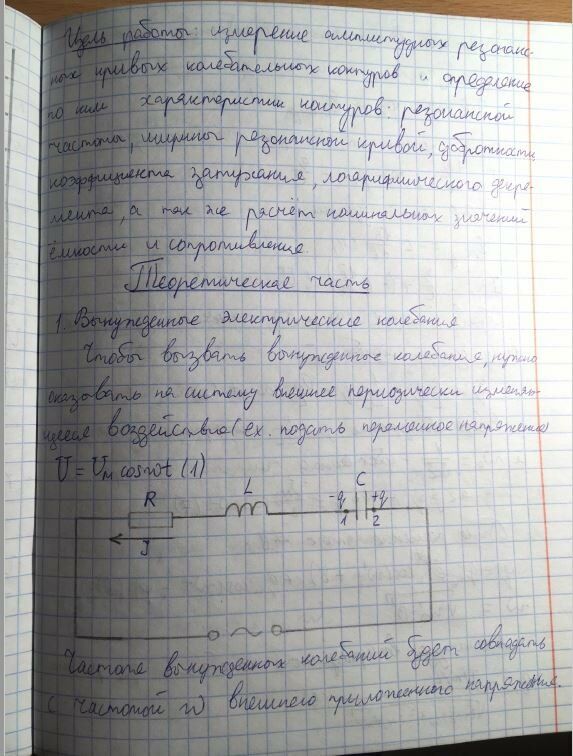 Цель работы: измерение амплитудных резонанс-
ных кривых колебательных контуров и определение
по ним характеристик контуров: резонансной
частоты, ширины резонансной кривой, добротности,
коэффициента затухания, логарифмического декре-
мента, а так же расчёт номинальных значений
ёмкости и сопротивления.
Теоретическая часть
1. Вынужденные электрические колебания
Чтобы вызвать вынужденные колебания, нужно
оказывать на систему внешнее периодически изменяю-
щееся воздействие (ex. подать переменное напряжение)
U = Uм cos wt (1)
R L C
-q +q
1 2
J
~
Частота вынужденных колебаний будет совпадать
с частотой w внешнего приложенного напряжения.